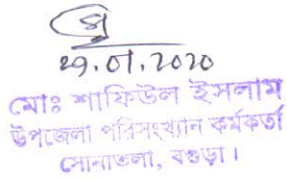 ২৯.০১.২০২০
মোঃ শাফিউল ইসলাম
উপজেলা পরিসংখ্যান কর্মকর্তা
সোনাতলা, বগুড়া।